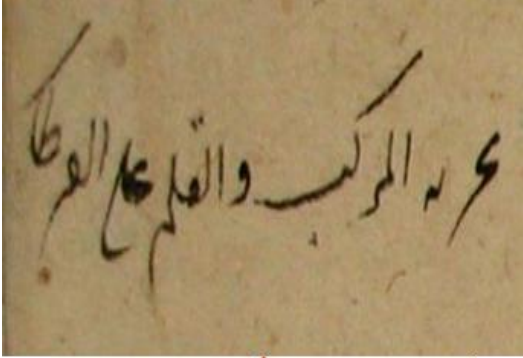 تجربه المركب والقلم على القرطا